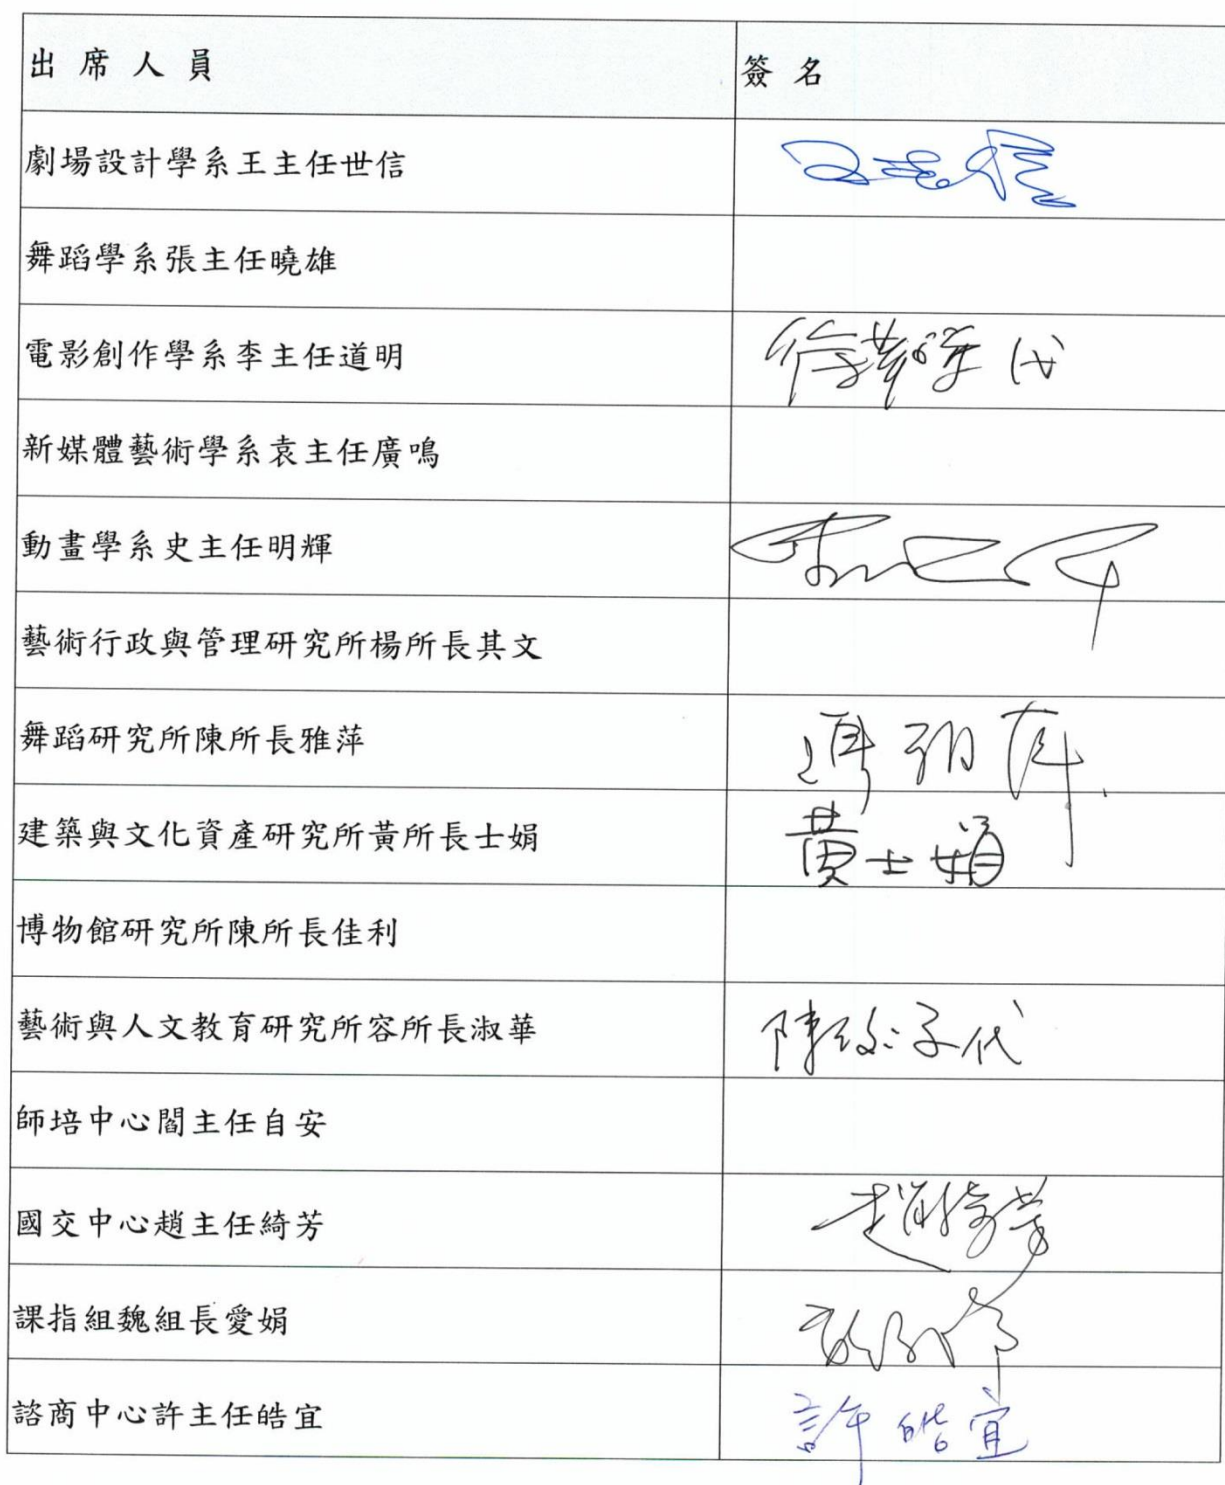 出席人員 簽名
劇場設計學系王主任世信 王世信
舞蹈學系張主任曉雄
電影創作學系李主任道明 代
新媒體藝術學系袁主任廣鳴
動畫學系史主任明輝
藝術行政與管理研究所楊所長其文
舞蹈研究所陳所長雅萍 陳雅萍
建築與文化資產研究所黃所長士娟 黃士娟
博物館研究所陳所長佳利
藝術與人文教育研究所容所長淑華 代
師培中心閻主任自安
國交中心趙主任綺芳 趙綺芳
課指組魏組長愛娟
諮商中心許主任皓宜 許皓宜